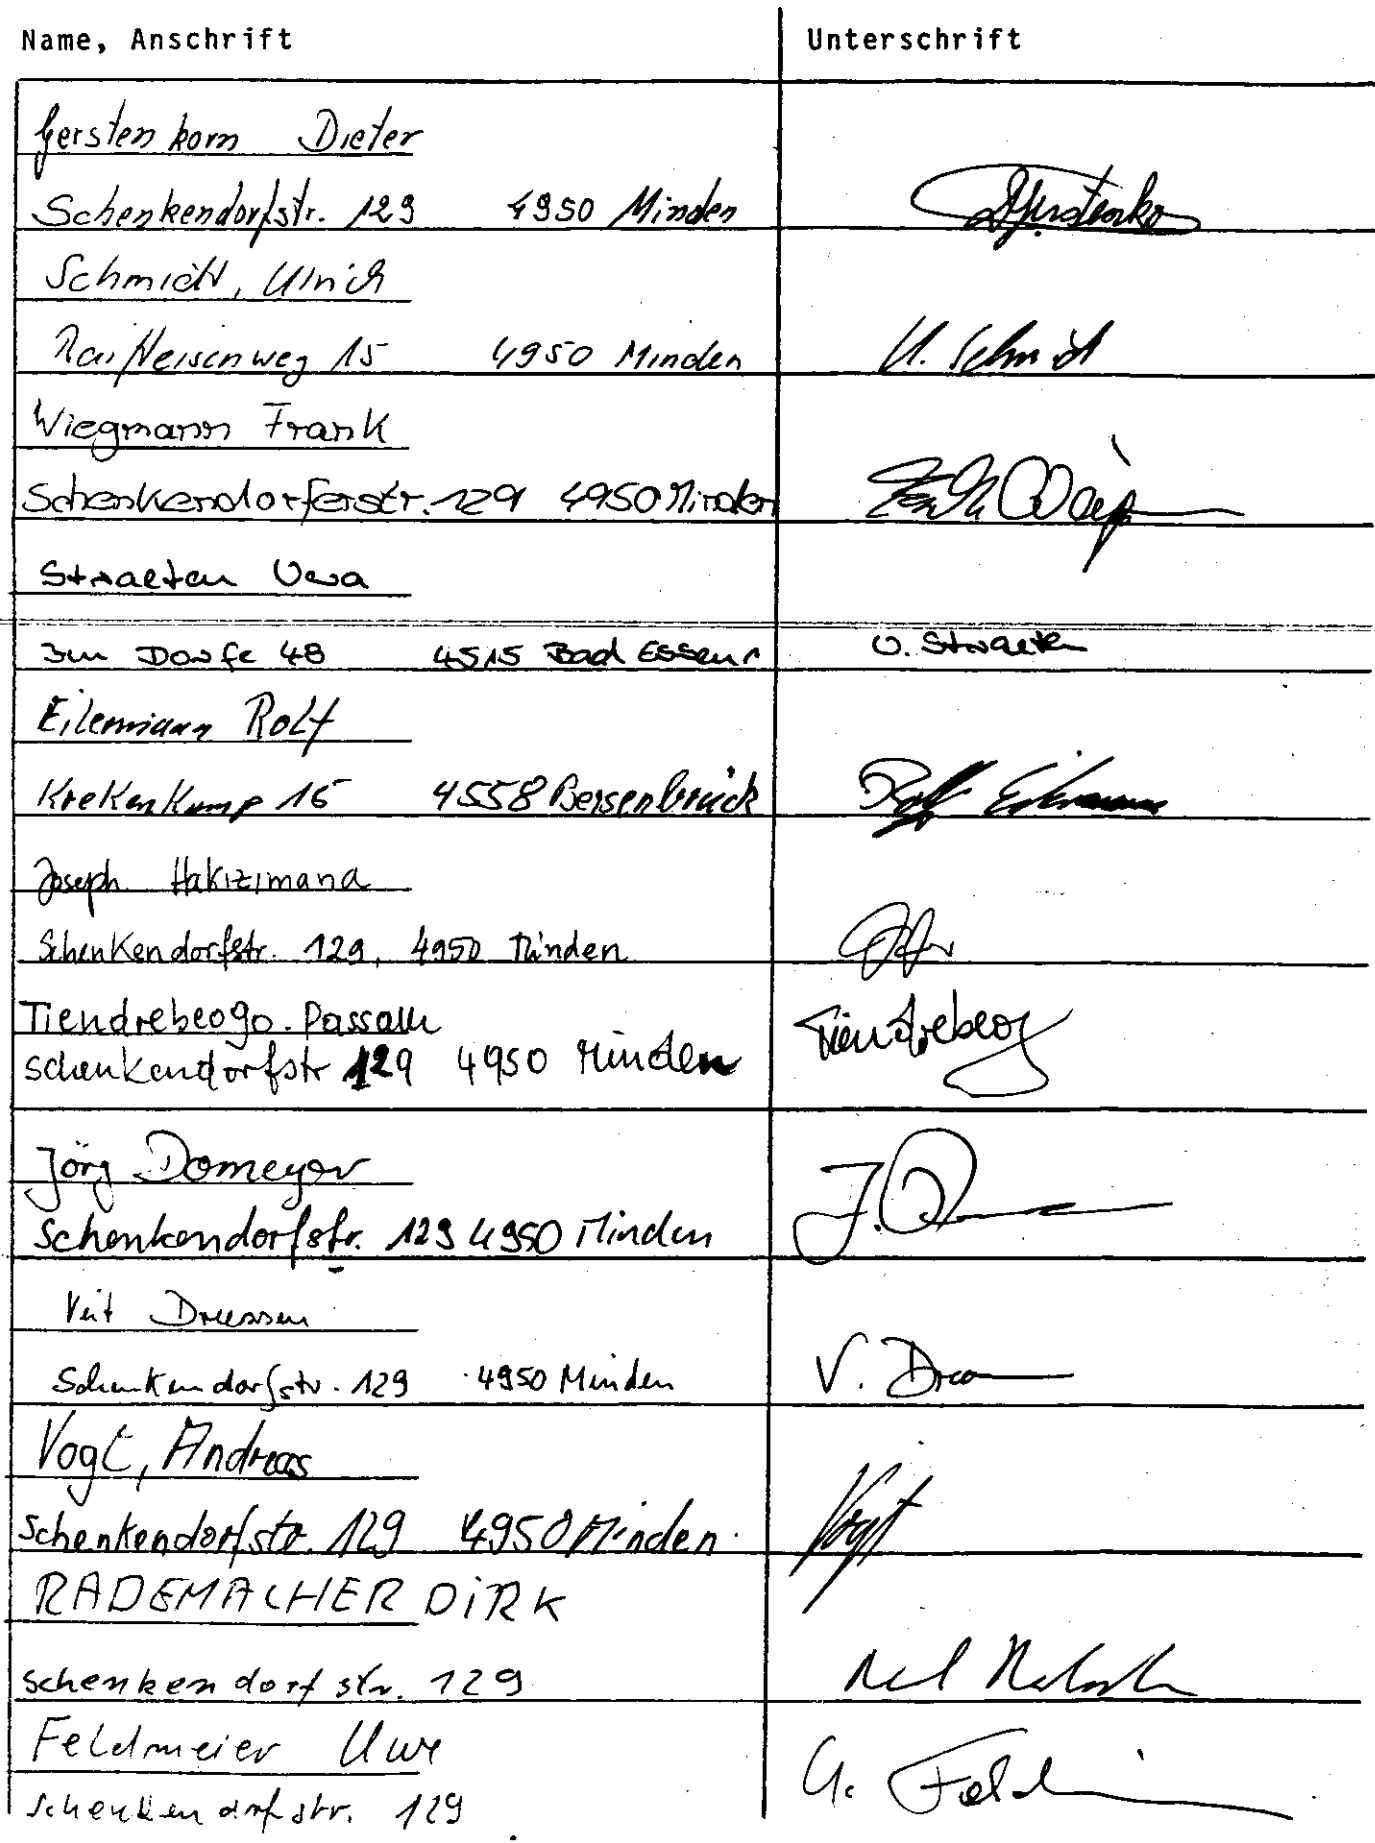 Name, Anschrift Unterschrift
Gerstenkorn Dieter
Schenkendorfstr. 129 4950 Minden
Schmidt, Ulrich
Raiffeisenweg 15 4950 Minden U. Schmidt
Wiegmann Frank
Schenkendorferstr. 129 4950 Minden
Straeten Uwa
Im Dorfe 48 4515 Bad Essen U. Straeten
Eilermann Rolf
Krekenkamp 16 4558 Bersenbrück Rolf Eilermann
Joseph Hakizimana
Schenkendorfstr. 129, 4950 Minden
Tiendrebeogo. Passam Tiendrebeog
Schenkendorfstr 129 4950 Minden
Jörg Domeyer
Schenkendorfstr. 129 4950 Minden
Veit Driessen
Schenkendorfstr. 129 4950 Minden V.
Vogt, Andreas
Schenkendorfstr. 129 4950 Minden. Vogt
RADEMACHER DiRK
schenkendorfstr. 129
Feldmeier Uwe
schenkendorfstr. 129 U.